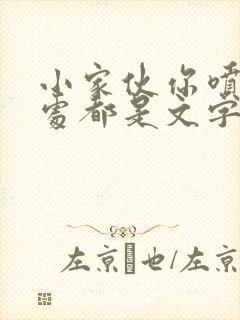 小家伙你喷
处都是文字
左京也/左京